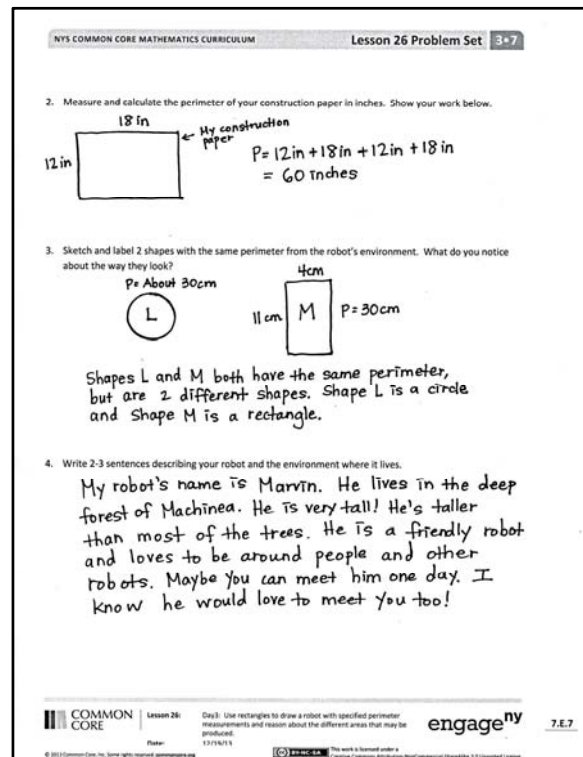 NYS COMMON CORE MATHEMATICS CURRICULUM Lesson 26 Problem Set 3•7
2. Measure and calculate the perimeter of your construction paper in inches. Show your work below.
18 in
← My construction
paper
12 in
P= 12in +18in +12in +18 in
= 60 inches
3. Sketch and label 2 shapes with the same perimeter from the robot's environment. What do you notice
about the way they look?
P= About 30cm
L
4cm
11 cm
M
P=30cm
Shapes L and M both have the same perimeter,
but are 2 different shapes. Shape L is a circle
and Shape M is a rectangle.
4. Write 2-3 sentences describing your robot and the environment where it lives.
My robot's name is Marvin. He lives in the deep
forest of Machinea. He is very tall! He's taller
than most of the trees. He is a friendly robot
and loves to be around people and other
robots. Maybe you can meet him one day. I
know he would love to meet you too!
COMMON
CORE
Lesson 26:
Day3: Use rectangles to draw a robot with specified perimeter
measurements and reason about the different areas that may be
produced.
Date:
12/19/13
engageny
7.E.7
© 2013 Common Core, Inc. Some rights reserved. commoncore.org
BY-NC-SA
This work is licensed under a